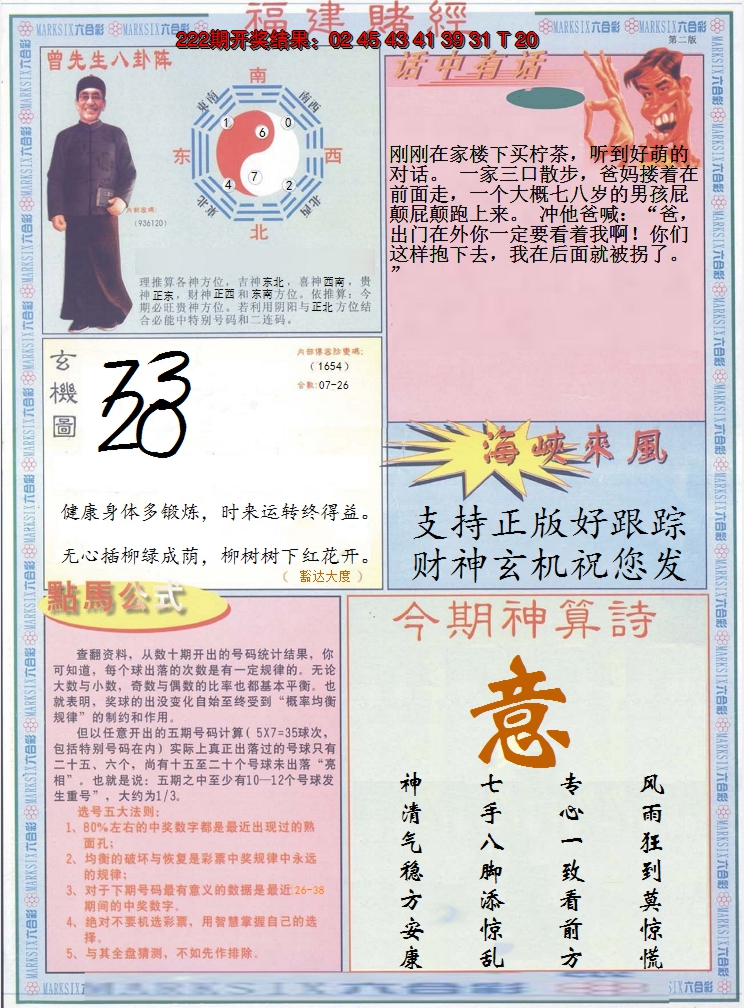 福建賭經
222期开奖结果：02 45 43 41 39 31 T 20
第二版
MARKSIX六合彩
曾先生八卦阵
南
东南
西南
东
西
东北
西北
北
1
6
0
4
7
2
内部密碼:
(936120)
理推算各神方位，吉神东北，喜神西南，贵
神正东，财神正西和东南方位。依推算：今
期必旺贵神方位。若利用阴阳与正北方位结
合必能中特别号码和二连码。
话中有话
刚刚在家楼下买柠茶，听到好萌的
对话。 一家三口散步，爸妈搂着在
前面走，一个大概七八岁的男孩屁
颠屁颠跑上来。 冲他爸喊：“爸，
出门在外你一定要看着我啊！你们
这样抱下去，我在后面就被拐了。
”
玄機圖
内部傳密防覺碼:
(1654)
合數:07-26
健康身体多锻炼，时来运转终得益。
无心插柳绿成荫，柳树树下红花开。
（ 豁达大度 ）
海峡來風
支持正版好跟踪
财神玄机祝您发
點馬公式
查翻资料，从数十期开出的号码统计结果，你
可知道，每个球出落的次数是有一定规律的。无论
大数与小数，奇数与偶数的比率也都基本平衡。也
就表明，奖球的出没变化自始至终受到“概率均衡
规律”的制约和作用。
但以任意开出的五期号码计算( 5X7=35球次，
包括特别号码在内) 实际上真正出落过的号球只有
二十五、六个，尚有十五至二十个号球未出落“亮
相”。也就是说：五期之中至少有10—12个号球发
生重号”，大约为1/3。
选号五大法则：
1、80%左右的中奖数字都是最近出现过的熟
面孔；
2、均衡的破坏与恢复是彩票中奖规律中永远
的规律；
3、对于下期号码最有意义的数据是最近26-38
期间的中奖数字。
4、绝对不要机选彩票，用智慧掌握自己的选
择。
5、与其全盘猜测，不如先作排除。
今期神算詩
意
风雨狂到莫惊慌
专心一致看前方
七手八脚添惊乱
神清气稳方安康